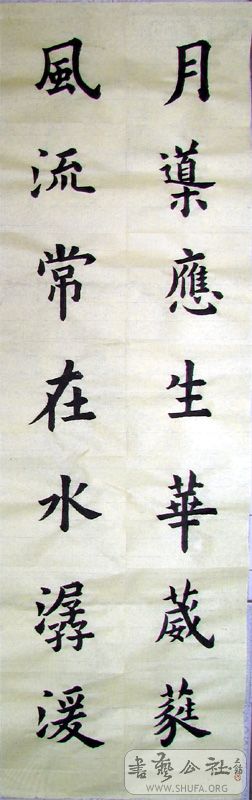 月應生華葳蕤
風流常在水潺湲
書藝公社
WWW.SHUFA.ORG